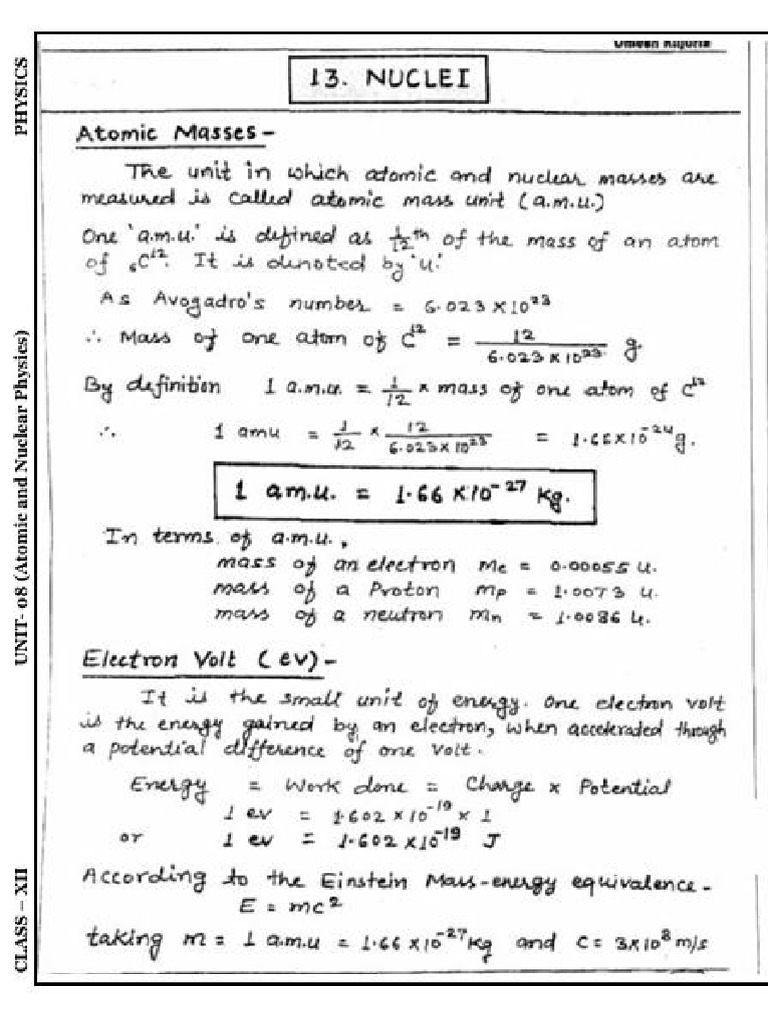 Umesh Rajoria
13. NUCLEI
Atomic Masses -
The unit in which atomic and nuclear masses are
measured is called atomic mass unit (a.m.u.)
One 'a.m.u.' is defined as 1/12 th of the mass of an atom
of ₆C¹². It is denoted by 'u'.
As Avogadro's number = 6.023 × 10²³
∴ Mass of one atom of C¹² = 12/(6.023 × 10²³) g
By definition 1 a.m.u. = 1/12 × mass of one atom of C¹²
∴ 1 amu = 1/12 × 12/(6.023 × 10²³) = 1.66 × 10⁻²⁴ g.
1 a.m.u. = 1.66 × 10⁻²⁷ Kg.
In terms of a.m.u.,
mass of an electron me = 0.00055 u.
mass of a Proton mp = 1.0073 u.
mass of a neutron mn = 1.0086 u.
Electron Volt (ev) -
It is the small unit of energy. One electron volt
is the energy gained by an electron, when accelerated through
a potential difference of one volt.
Energy = Work done = Charge × Potential
1 ev = 1.602 × 10⁻¹⁹ × 1
or 1 ev = 1.602 × 10⁻¹⁹ J
According to the Einstein Mass-energy equivalence -
E = mc²
taking m = 1 a.m.u = 1.66 × 10⁻²⁷ Kg and C = 3 × 10⁸ m/s
PHYSICS
UNIT- 08 (Atomic and Nuclear Physics)
CLASS – XII